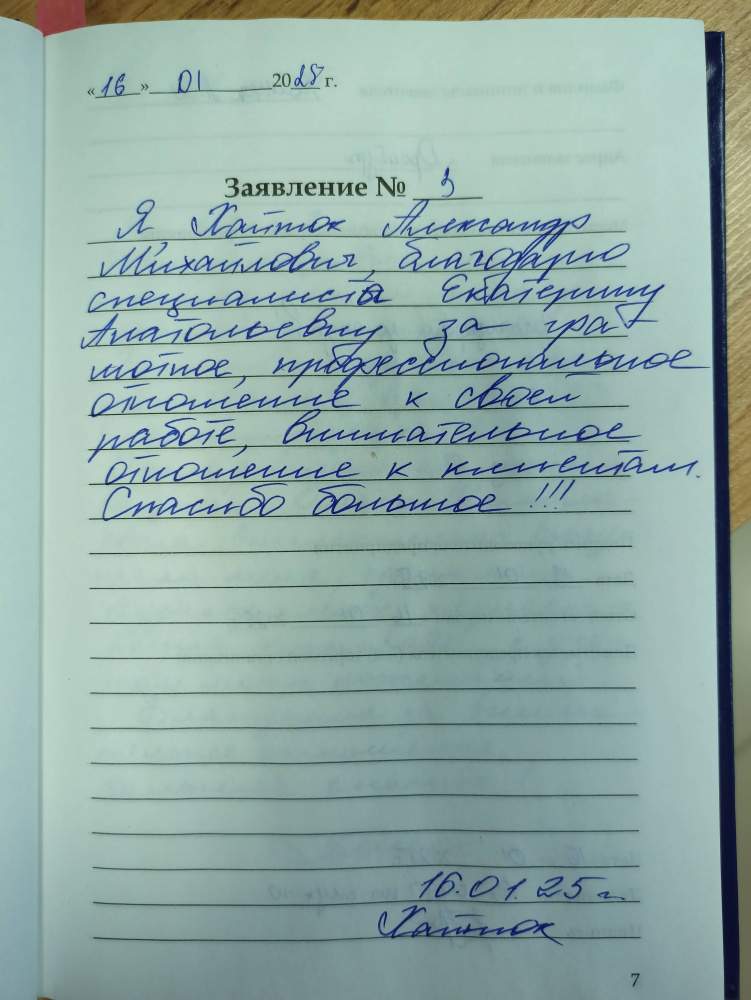 «16» 01 2025 г.
Заявление № 3
Я Хайток Александр
Михайлович, благодарю
специалиста Екатерину
Анатольевну за гра-
мотное, профессиональное
отношение к своей
работе, внимательное
отношение к клиентам.
Спасибо большое !!!
16.01.25 г.
Хайток
7